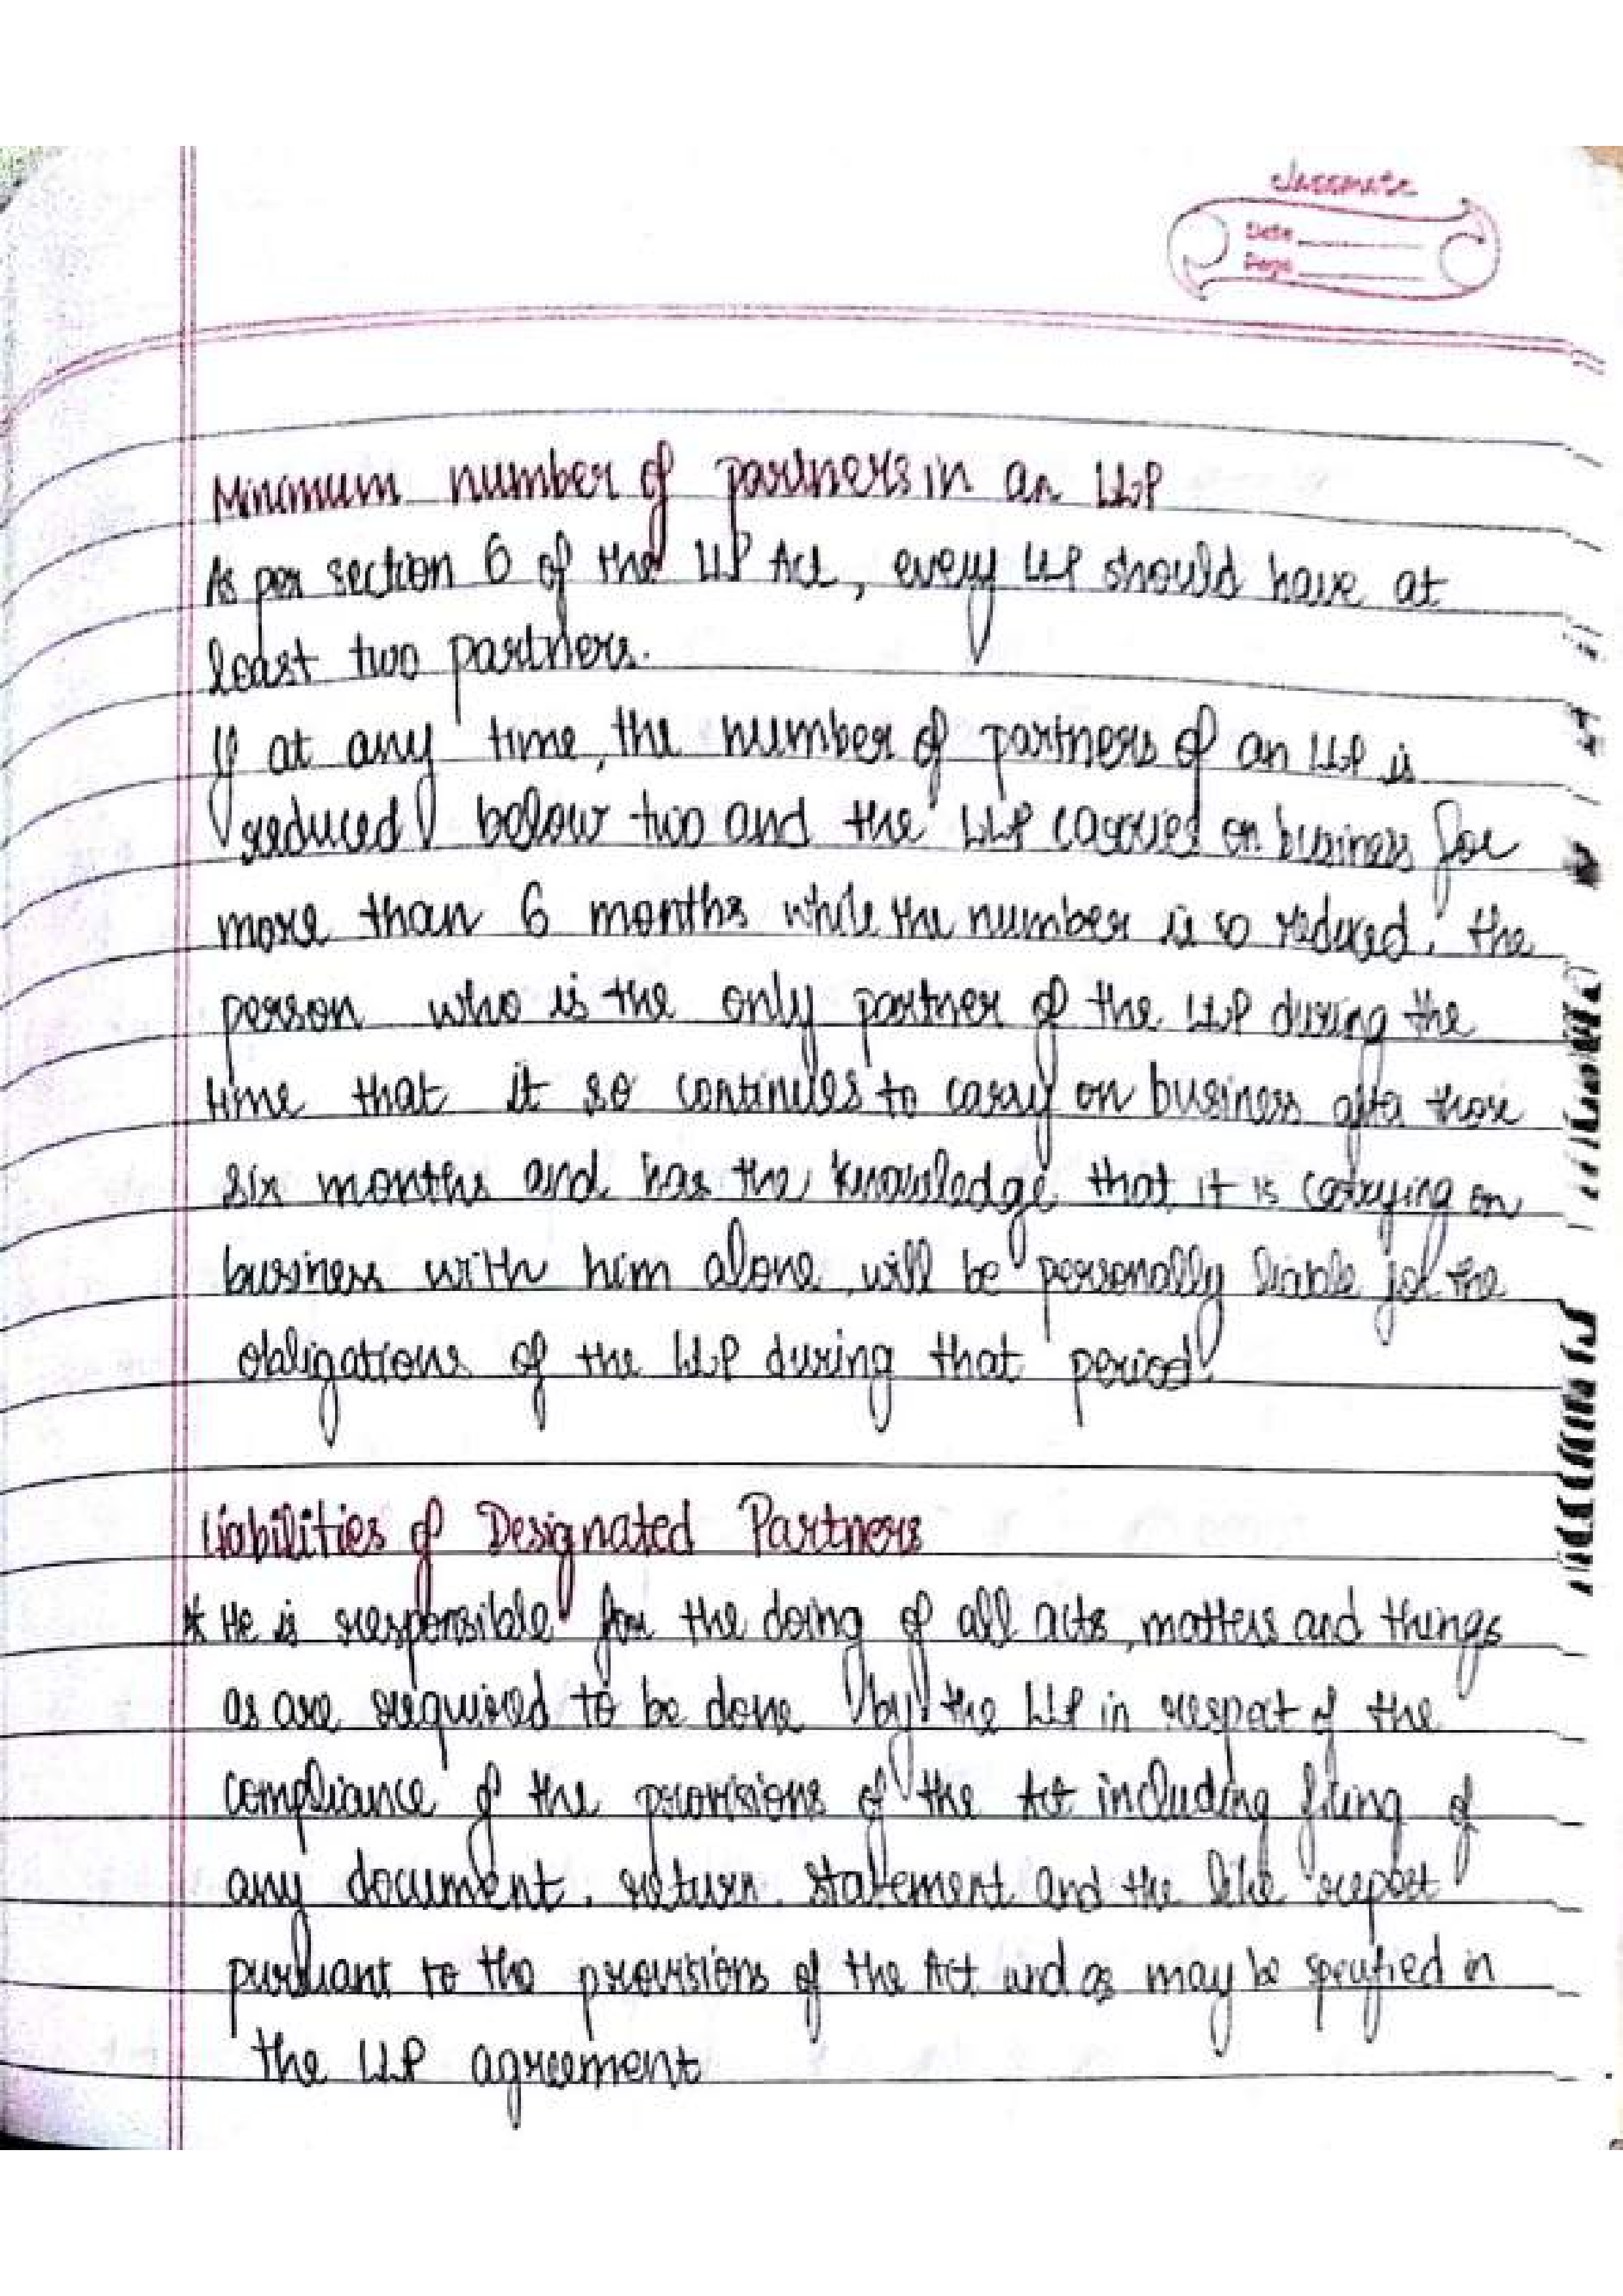 classmate
Date
Page
Minimum number of partners in an LLP
As per section 6 of the LLP Act, every LLP should have at
least two partners.
If at any time, the number of partners of an LLP is
reduced below two and the LLP carried on business for
more than 6 months while the number is so reduced, the
person who is the only partner of the LLP during the
time that it so continues to carry on business after those
six months and has the knowledge that it is carrying on
business with him alone, will be personally liable for the
obligations of the LLP during that period.
Liabilities of Designated Partners
* He is responsible for the doing of all acts, matters and things
as are required to be done by the LLP in respect of the
compliance of the provisions of the Act including filing of
any document, return, statement and the like report
pursuant to the provisions of the Act and as may be specified in
the LLP agreement